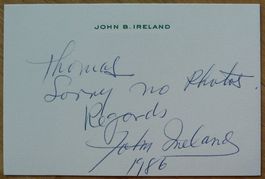 JOHN B. IRELAND
Thomas
Sorry no photos.
Regards
John Ireland
1986